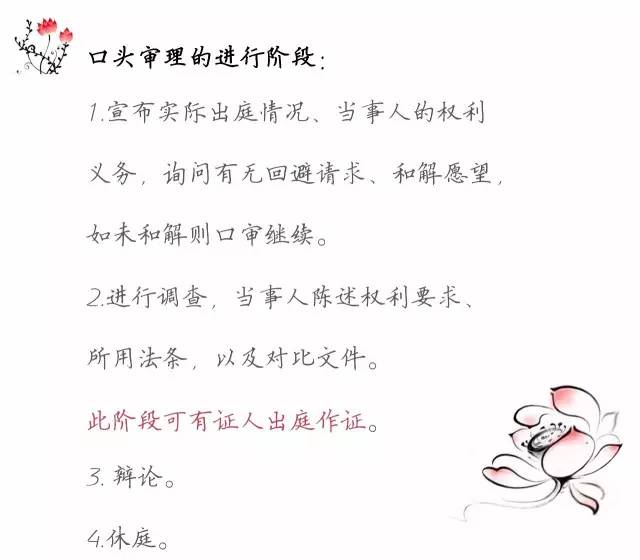 口头审理的进行阶段：
1.宣布实际出庭情况、当事人的权利
义务，询问有无回避请求、和解愿望，
如未和解则口审继续。
2.进行调查，当事人陈述权利要求、
所用法条，以及对比文件。
此阶段可有证人出庭作证。
3. 辩论。
4.休庭。